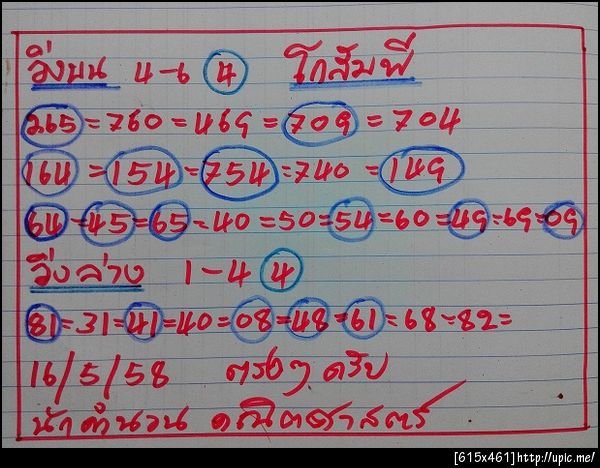 วิ่งบน 4-6 4 โกสัมพี
265=760=469=709=704
164=154=754=740=149
64-45=65-40=50=54=60=49=69=09
วิ่งล่าง 1-4 4
81=31=41=40=08=48=61=68-82=
16/5/58 ตรงๆ ครับ
นักคำนวน คณิตศาสตร์
[615x461]http://upic.me/